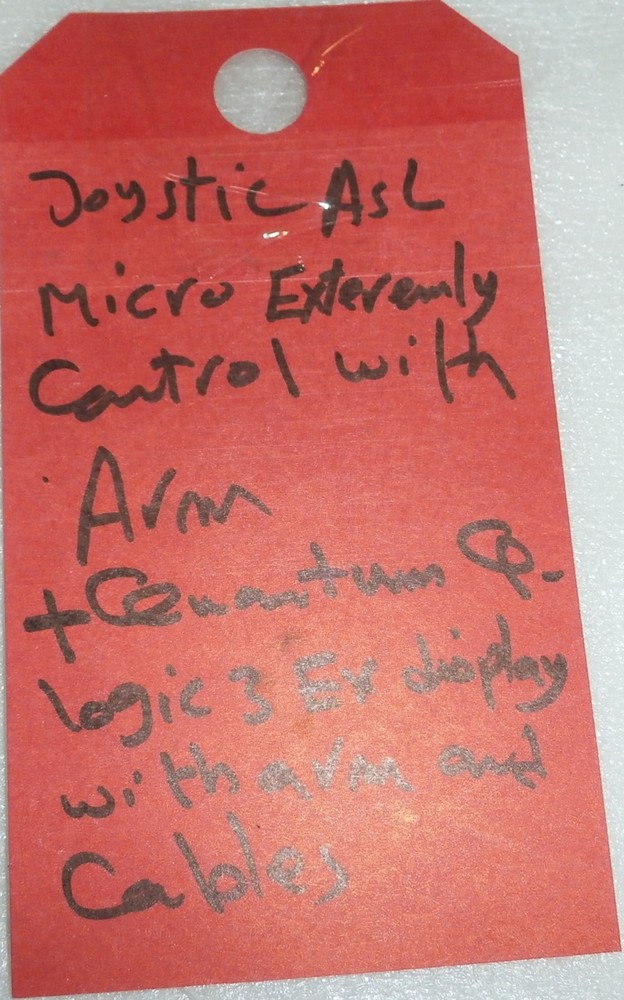 Joystic ASL
Micro Exteremly
Control with
Arm
+ Quantum Q-
logic 3 Ex display
with arm and
Cables